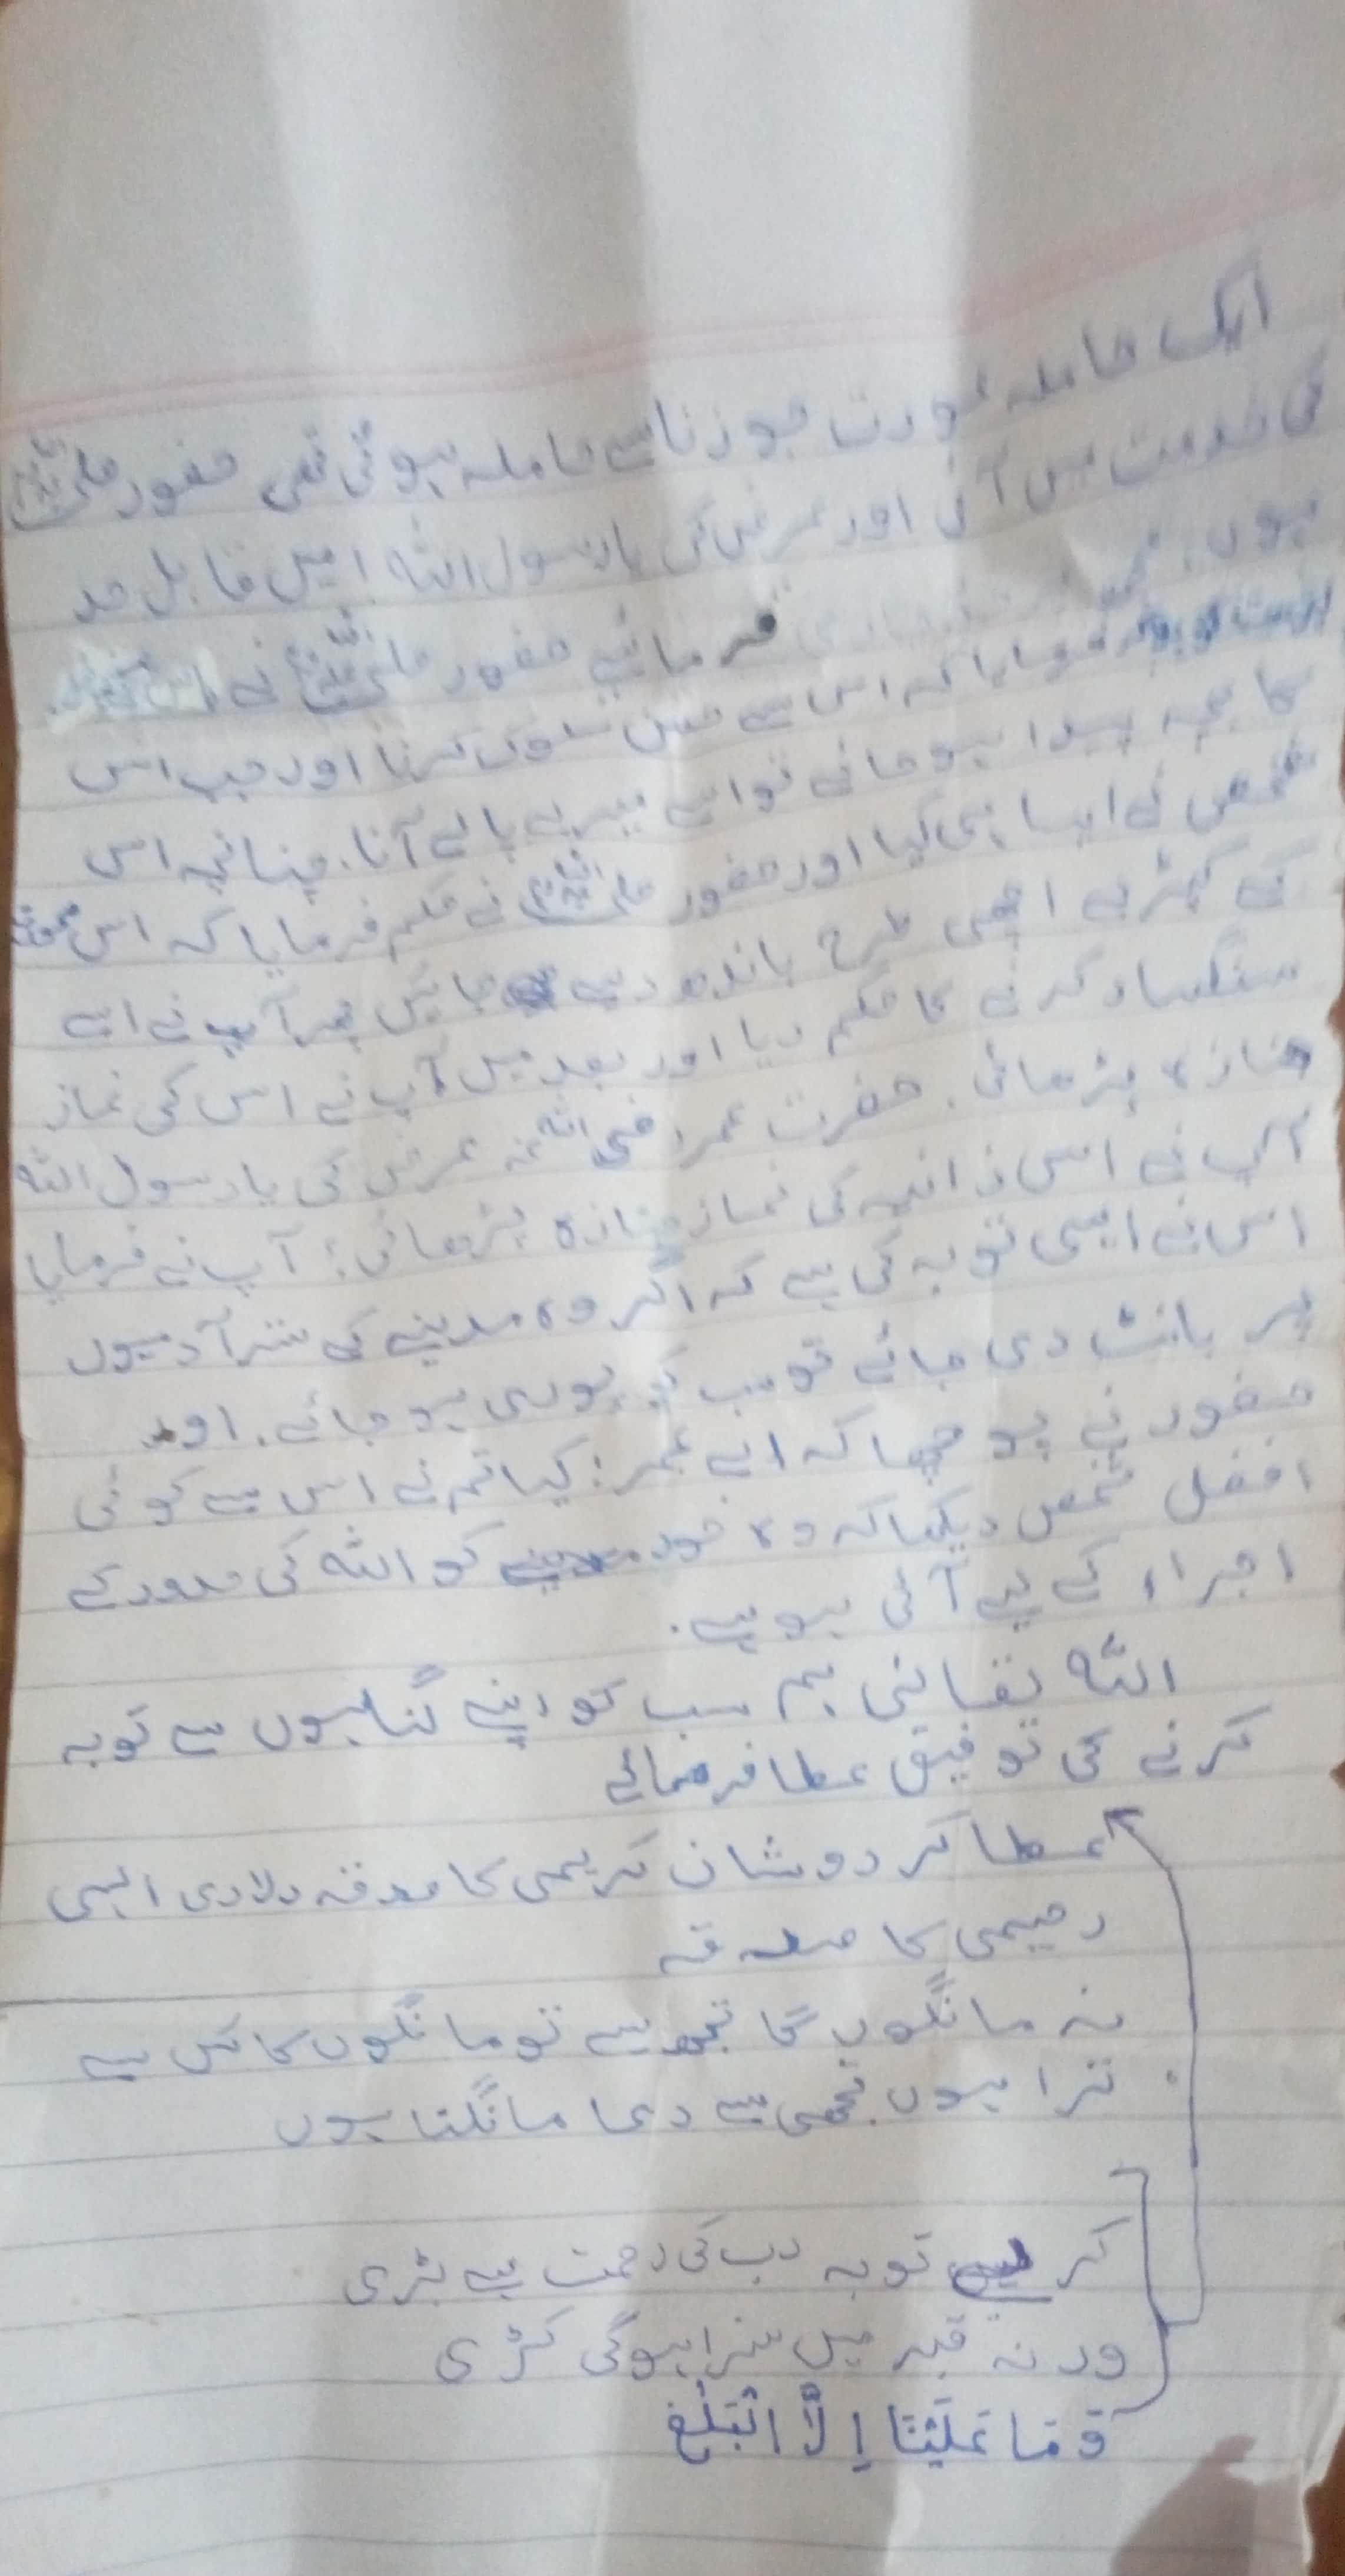 ایک حاملہ عورت جو زنا سے حاملہ ہوئی تھی حضور صلی اللہ
کی خدمت میں آئی اور عرض کی یا رسول اللہ! میں قابل حد
ہوں، فرمائیے حضور صلی اللہ نے
فرمایا کہ اس سے حسن سلوک کرنا اور جب اس
کا بچہ پیدا ہو جائے تو اسے میرے پا لے آنا. چنانچہ اس
شخص نے ایسا ہی کیا اور حضور صلی اللہ نے حکم فرمایا کہ اس
کے کپڑے اچھی طرح باندھ دیے جائیں پھر آپ نے اسے
سنگسار کرنے کا حکم دیا اور بعد میں آپ نے اس کی نماز
جنازہ پڑھائی. حضرت عمر رضی اللہ عنہ عرض کی یا رسول اللہ
آپ نے اس زانیہ کی نماز جنازہ پڑھائی؛ آپ نے فرمایا
اس نے ایسی توبہ کی ہے کہ اگر وہ مدینے کے ستر آدمیوں
پر بانٹ دی جائے تو سب کو پوری ہو جائے. اور
حضور نے پوچھا کہ اے عمر: کیا تم نے اس سے کوئی
افضل شخص دیکھا کہ وہ خود کو اللہ کی حدود کے
اجراء کے لیے آئی ہو ہے.
اللہ تعالیٰ ہم سب کو اپنے گناہوں سے توبہ
کرنے کی توفیق عطا فرمائے
عطا کر دو شان کریمی کا صدقہ دلا دی الہی
رحیمی کا صدقہ
نہ مانگوں گا تجھ سے تو مانگوں گا کس سے
ترا ہوں تجھی سے دعا مانگتا ہوں
کر لے توبہ رب کی رحمت ہے بڑی
ورنہ قبر میں سزا ہوگی کڑی
وَمَا عَلَيْنَا إِلَّا الْبَلٰغ